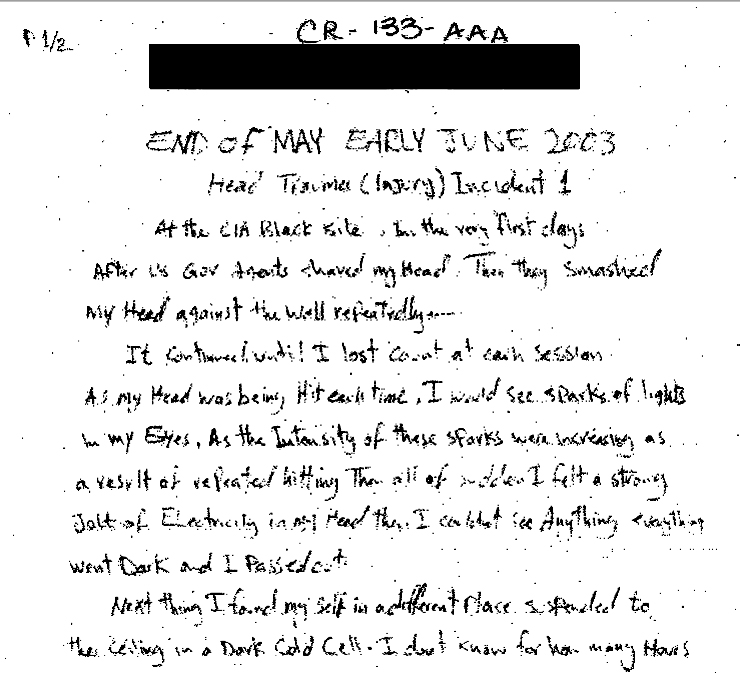 P 1/2
CR-133-AAA
END OF MAY EARLY JUNE 2003
Head Trauma (Injury) Incident 1
At the CIA Black site, In the very first days
After US Gov Agents shaved my Head. Then they smashed
My Head against the Wall repeatedly----
It continued until I lost count at each session
As my Head was being Hit each time, I would see sparks of lights
in my Eyes, As the Intensity of these sparks were increasing as
a result of repeated hitting Then all of sudden I felt a strong
Jolt of Electricity in my Head then I couldnt see Anything everything
went Dark and I Passed out
Next thing I found my self in a different Place suspended to
the ceiling in a Dark Cold Cell. I dont know for how many Hours